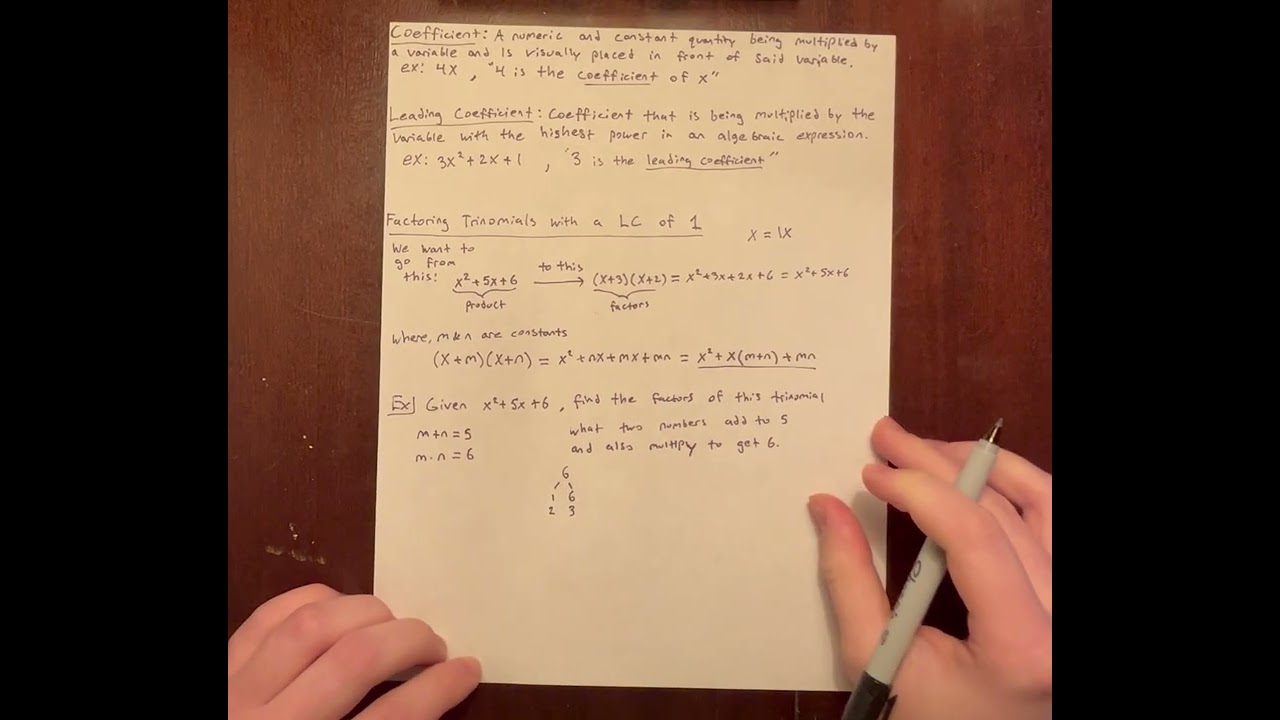 Coefficient: A numeric and constant quantity being multiplied by
a variable and is visually placed in front of said variable.
ex: 4x , "4 is the coefficient of x"
Leading Coefficient: Coefficient that is being multiplied by the
variable with the highest power in an algebraic expression.
ex: 3x²+2x+1 , "3 is the leading coefficient"
Factoring Trinomials with a LC of 1
x = 1x
We want to
go from
this: x²+5x+6 to this → (x+3)(x+2) = x²+3x+2x+6 = x²+5x+6
product factors
where, m & n are constants
(x+m)(x+n) = x²+nx+mx+mn = x²+x(m+n)+mn
Ex] Given x²+5x+6 , find the factors of this trinomial
m+n=5 what two numbers add to 5
m·n=6 and also multiply to get 6.
6
1 6
2 3